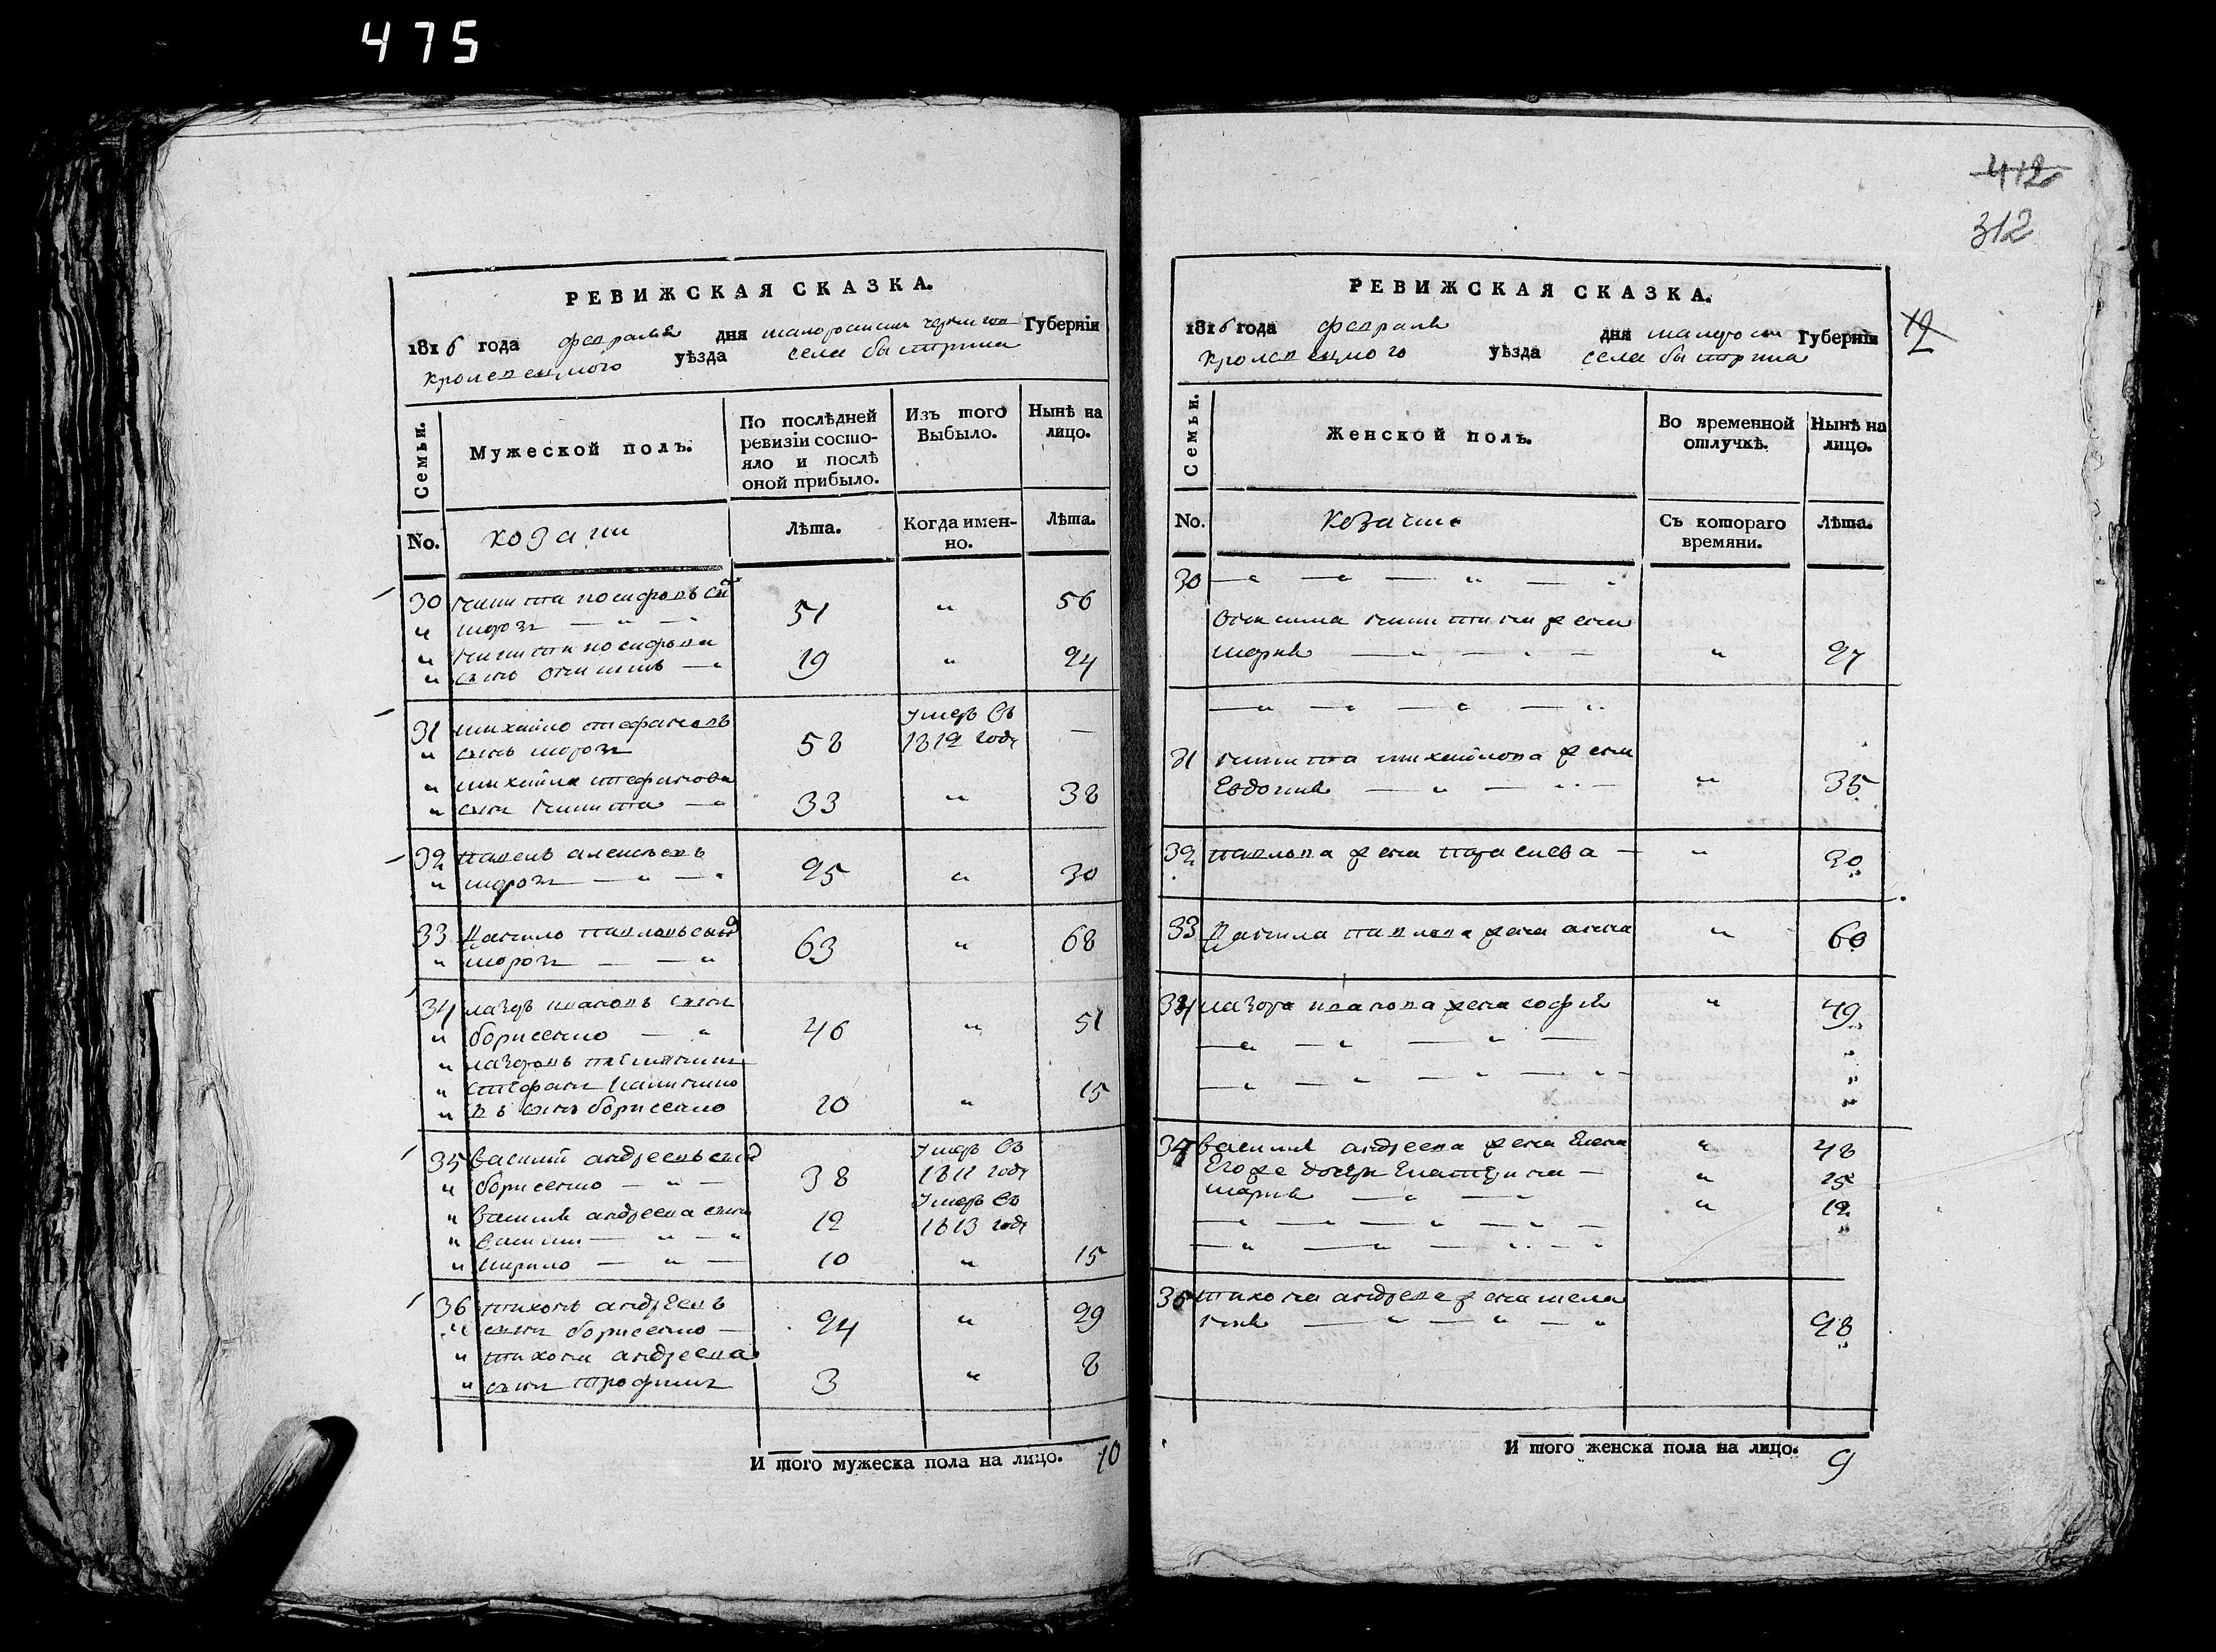 475
412
312
12
РЕВИЖСКАЯ СКАЗКА.
1816 года февраля дня малоросийской чернигов Губерніи
кролевецкого уѣзда села быстрика
Семьи.
Мужеской полъ.
По послѣдней ревизіи состояло и послѣ оной прибыло.
Изъ того Выбыло.
Нынѣ на лицо.
No.
козаки
Лѣта.
Когда именно.
Лѣта.
30 никита иосифовъ сынъ
" мороз — " — " 51 " 56
" никиты иосифова
" сынъ — " 19 " 24
31 михайло стефановъ умеръ въ
" сынъ мороз 58 1812 годе —
" михайла стефанова
" сын никита — " 33 " 38
32 павелъ алексѣевъ
" мороз — " — " 25 " 30
33 данило павловъ сынъ
" мороз — — " 63 " 68
34 лазоръ ивановъ сын
" борисенко — " 46 " 51
" лазоровъ племянник
" стефан
" въ сынъ борисенко 10 " 15
35 василий андреевъ сынъ умеръ въ
" борисенко — " — 38 1811 годе
" василия андреева сын умеръ въ
" василий — " — " 12 1813 годе
" кирило — " — 10 " 15
36 тихонъ андреевъ
" сын борисенко — 24 " 29
" тихона андреева
" сын трофим 3 " 8
И того мужеска пола на лицо. 10
РЕВИЖСКАЯ СКАЗКА.
1816 года февраля дня малоросий Губерніи
кролевецкого уѣзда села быстрика
Семьи.
Женской полъ.
Во временной отлучкѣ.
Нынѣ на лицо.
No.
козачки
Съ котораго времяни.
Лѣта.
30 — " — " — " — "
никиты жена
марія — " — " — " 27
— " — " — " — "
31 никита михайлова жена
Евдокія — " — " — " 35
32 павлова жена параскева — " 30
33 данила павлова жена анна " 60
34 лазора иванова жена софія " 49
— " — " — " —
— " — " — " — " —
василія андреева жена Елена " 48
Его же дочери Екатерина — " 15
марія — " — " " 12
— " — " — " — " —
— " — " — " — "
36 тихона андреева жена мела
нія — " — " — " 28
И того женска пола на лицо. 9